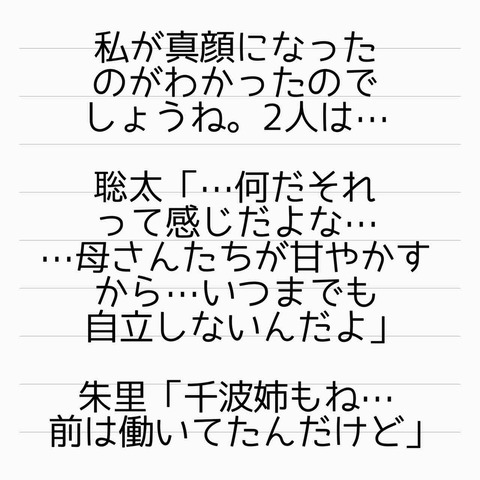 私が真顔になった
のがわかったので
しょうね。2人は…
聡太「…何だそれ
って感じだよな…
…母さんたちが甘やかす
から…いつまでも
自立しないんだよ」
朱里「千波姉もね…
前は働いてたんだけど」